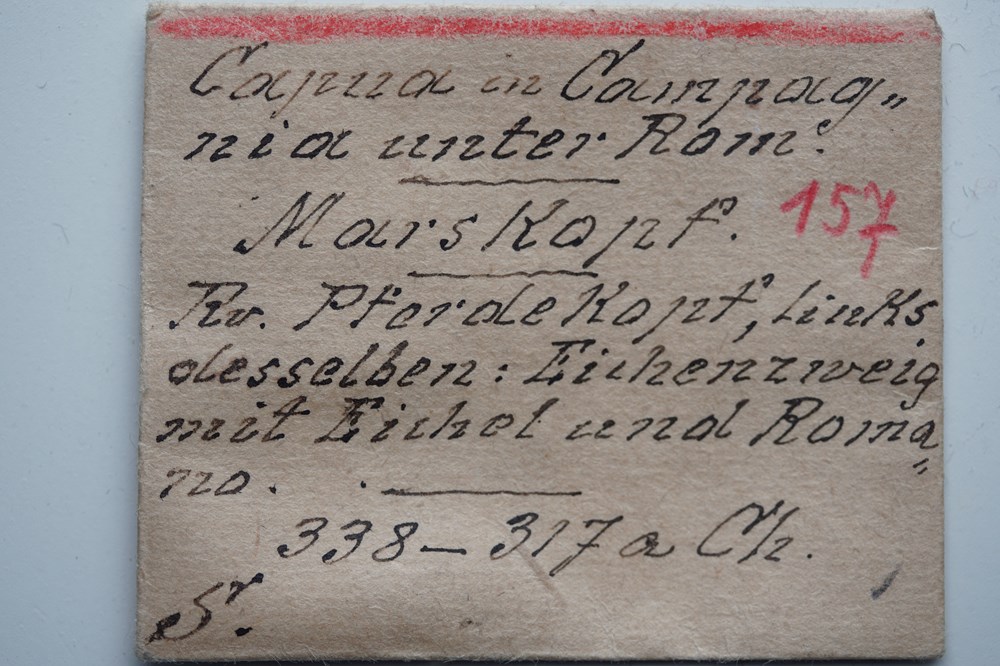 Capua in Campag„
nia unter Rom.
Mars Kopf.
157
Rv. Pferde Kopf, links
desselben: Eichenzweig
mit Eichel und Roma„
no.
338 – 317 a Ch.
S.